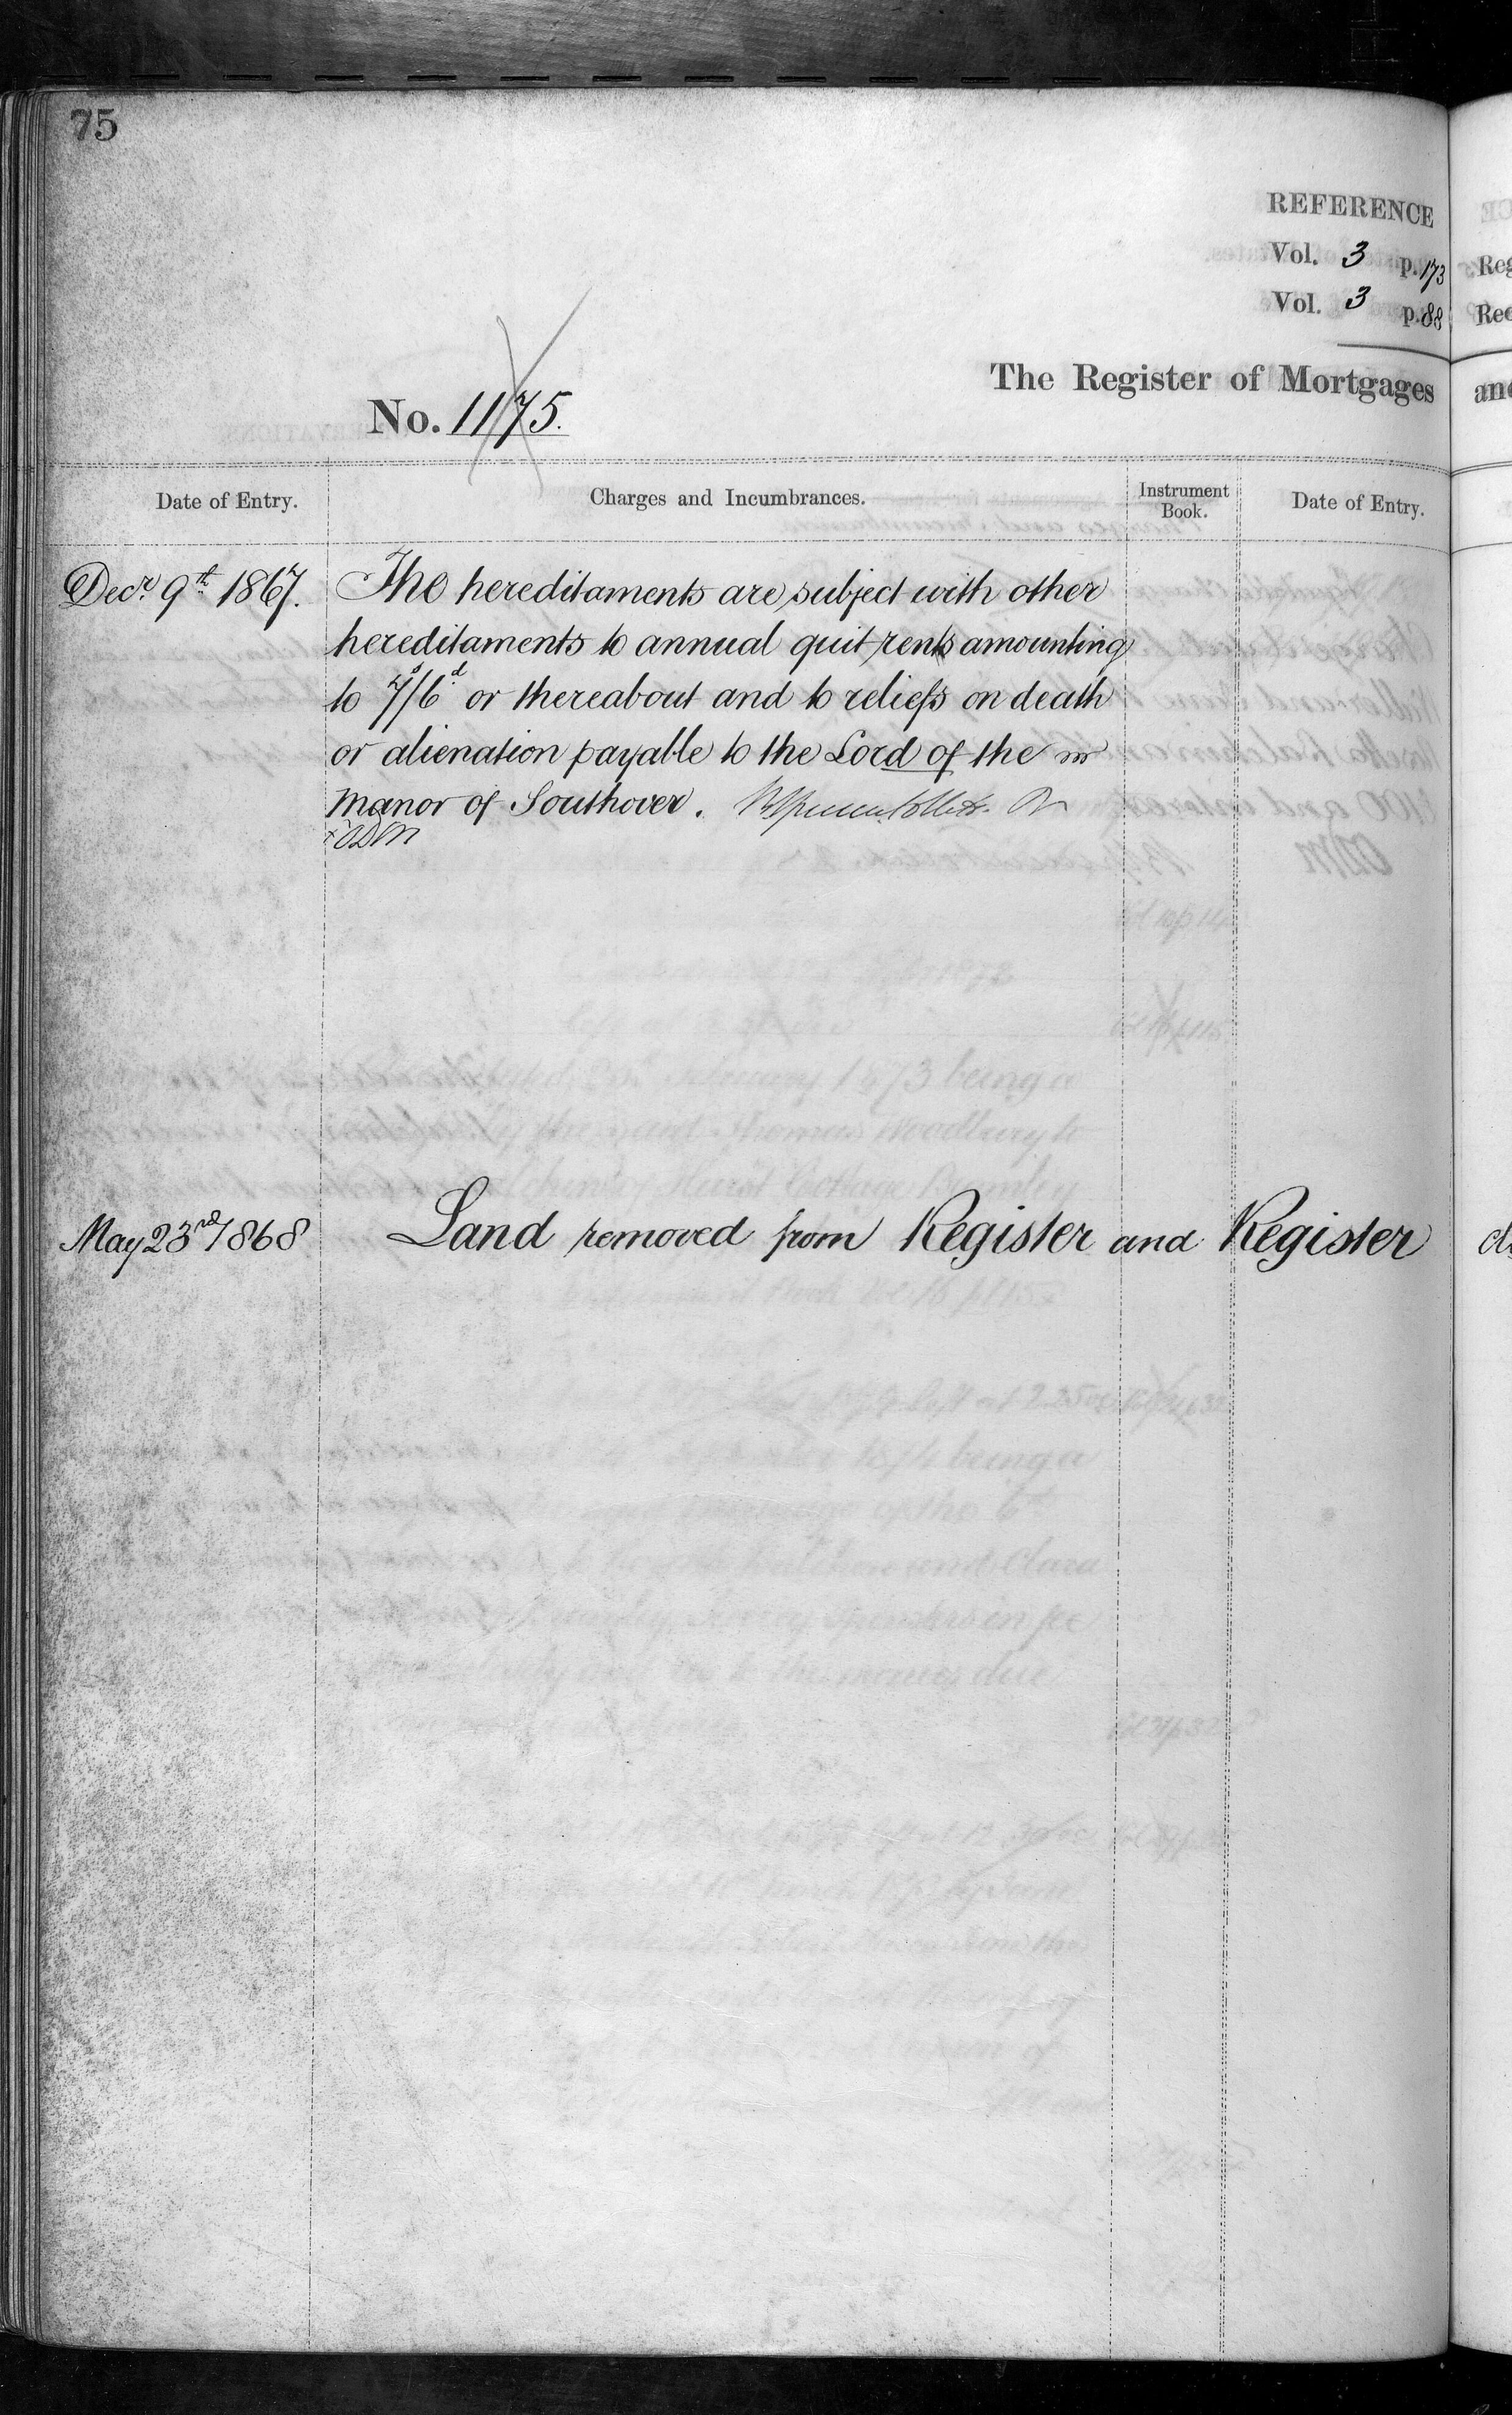 75
REFERENCE
Vol. 3 p. 173
Vol. 3 p. 88
Reg
Rec
The Register of Mortgages and
No. 1175.
Date of Entry. Charges and Incumbrances. Instrument Book. Date of Entry.
Decr. 9th 1867. The hereditaments are subject with other
hereditaments to annual quit rents amounting
to 7s/6d or thereabout and to reliefs on death
or alienation payable to the Lord of the
Manor of Southover.
May 23rd 1868 Land removed from Register and Register